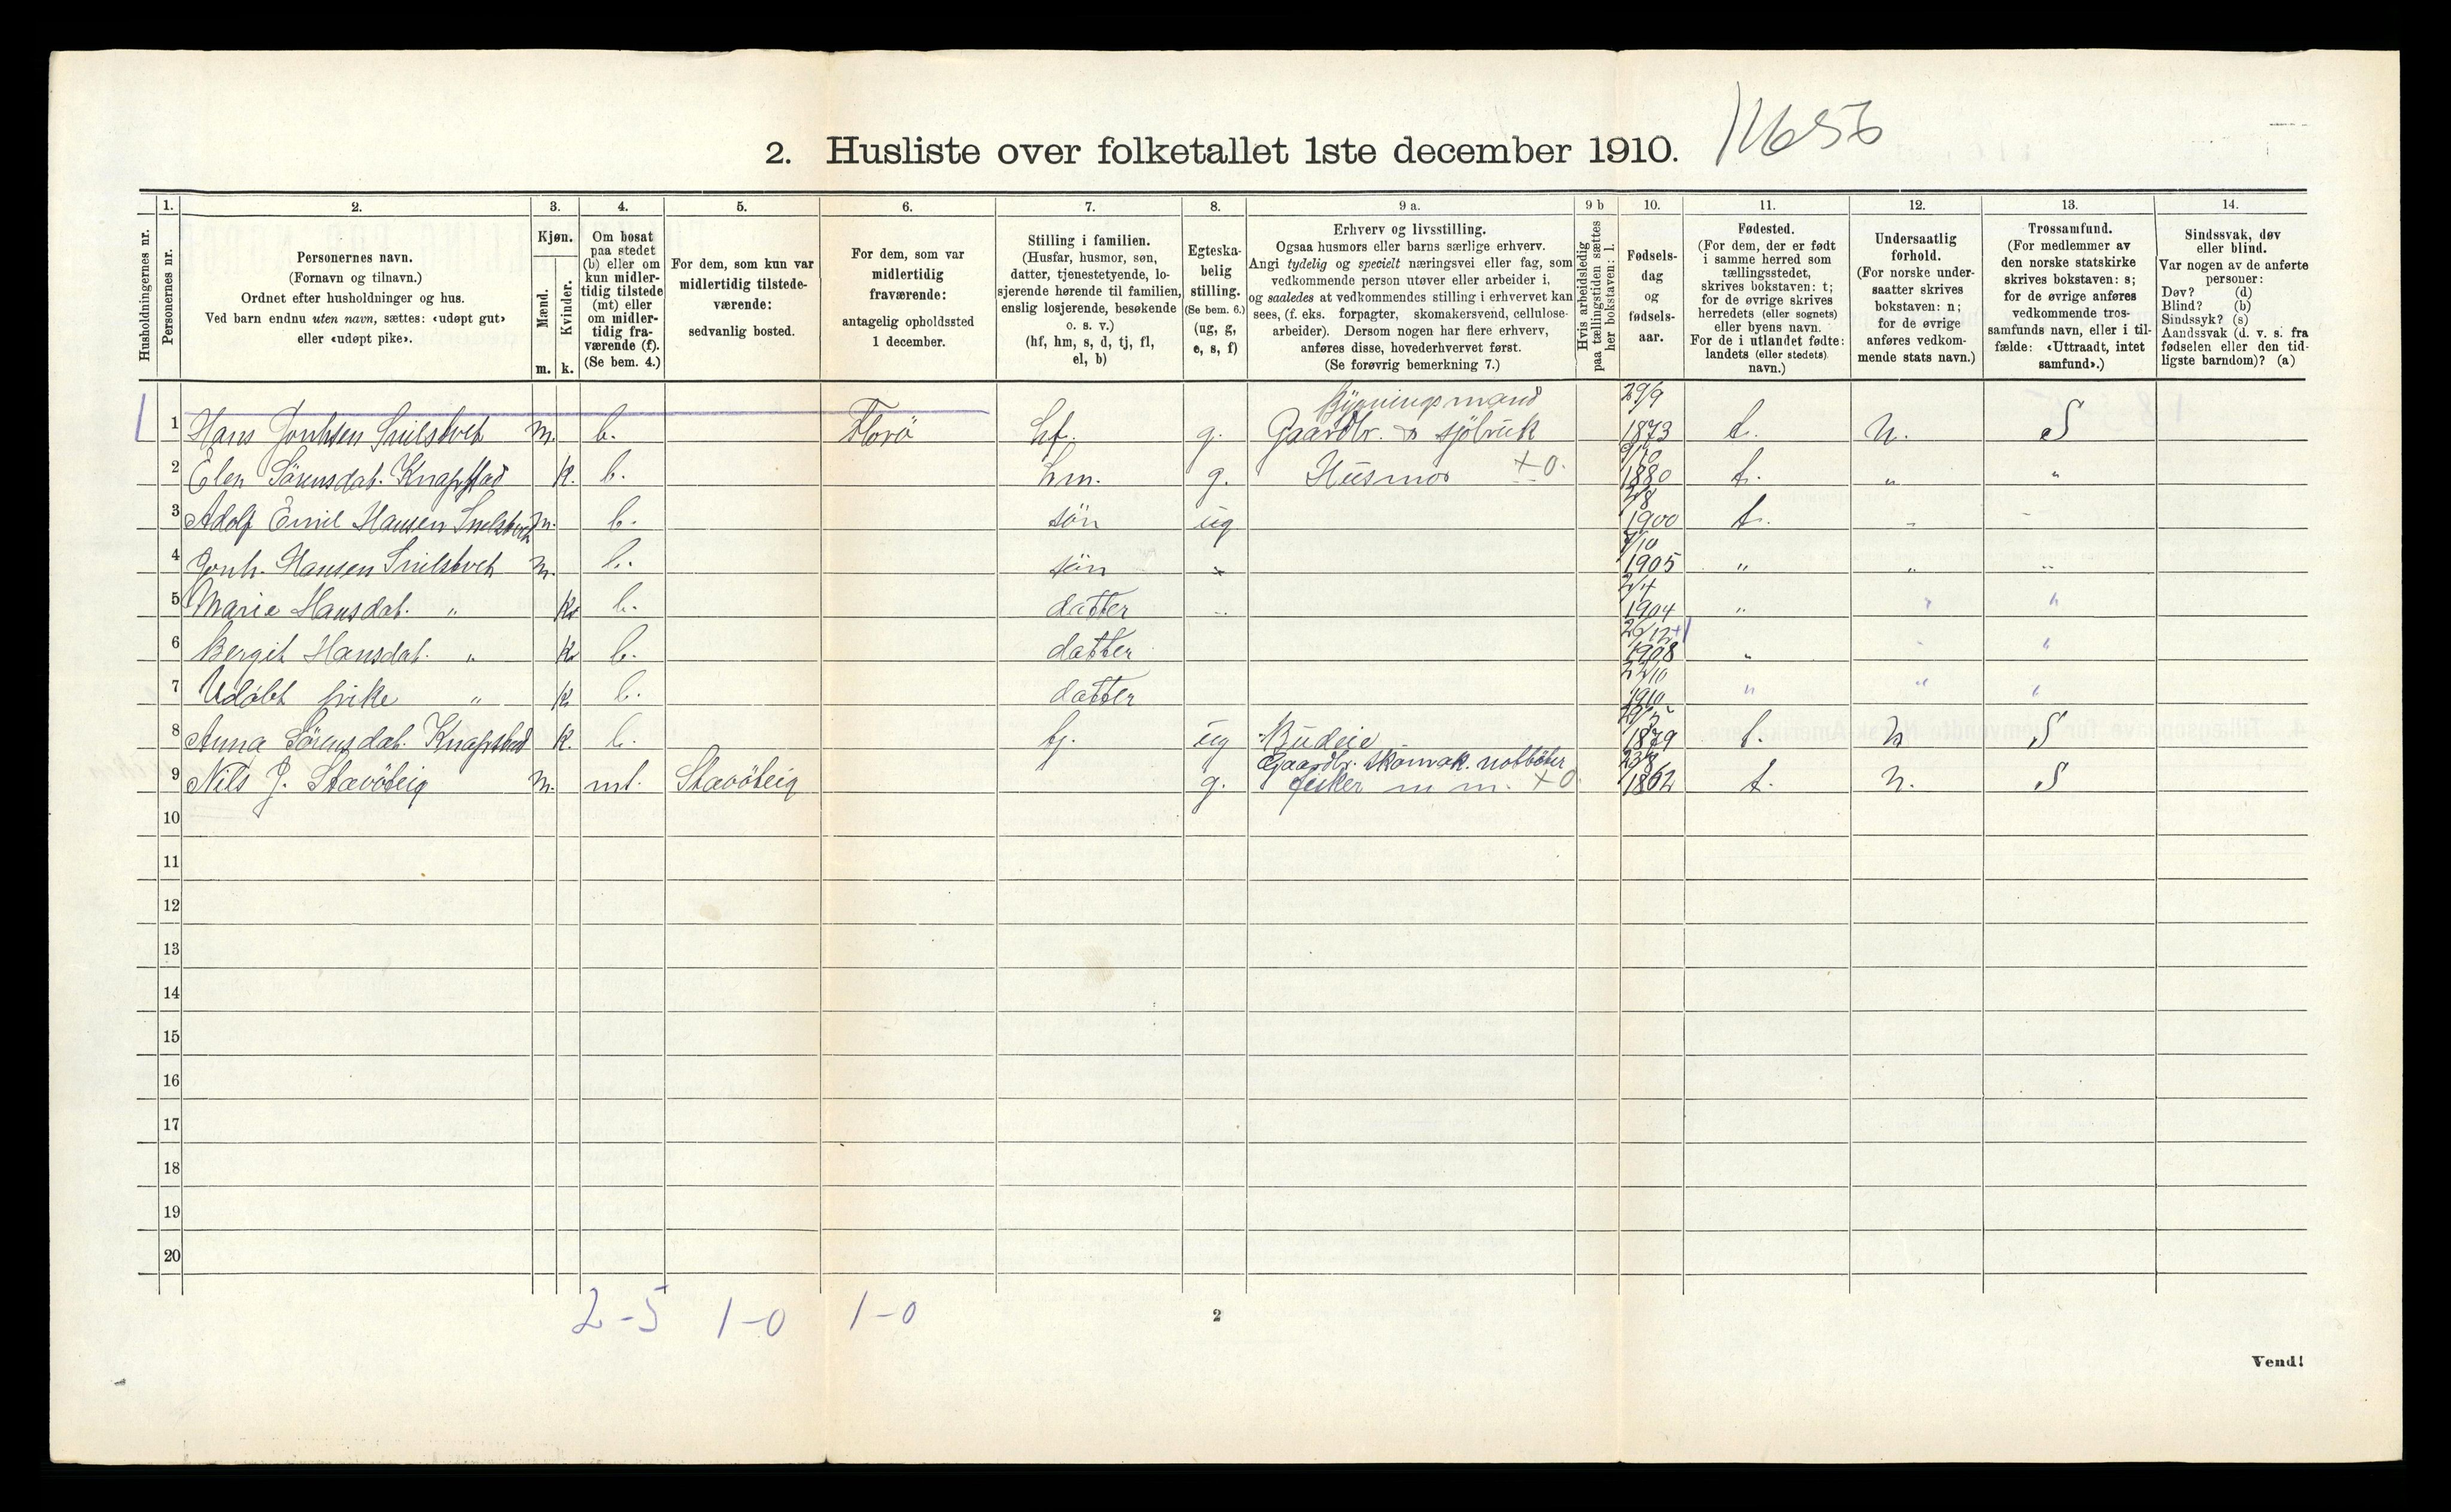 2. Husliste over folketallet 1ste december 1910. 11656
Husholdningernes nr.
1. Personernes nr.
2. Personernes navn. (Fornavn og tilnavn.) Ordnet efter husholdninger og hus. Ved barn endnu uten navn, sættes: «udøpt gut» eller «udøpt pike».
3. Kjøn. Mænd. m. Kvinder. k.
4. Om bosat paa stedet (b) eller om kun midlertidig tilstede (mt) eller om midlertidig fraværende (f). (Se bem. 4.)
5. For dem, som kun var midlertidig tilstedeværende: sedvanlig bosted.
6. For dem, som var midlertidig fraværende: antagelig opholdssted 1 december.
7. Stilling i familien. (Husfar, husmor, søn, datter, tjenestetyende, losjerende hørende til familien, enslig losjerende, besøkende o. s. v.) (hf, hm, s, d, tj, fl, el, b)
8. Egteskabelig stilling. (Se bem. 6.) (ug, g, e, s, f)
9 a. Erhverv og livsstilling. Ogsaa husmors eller barns særlige erhverv. Angi tydelig og specielt næringsvei eller fag, som vedkommende person utøver eller arbeider i, og saaledes at vedkommendes stilling i erhvervet kan sees, (f. eks. forpagter, skomakersvend, cellulosearbeider). Dersom nogen har flere erhverv, anføres disse, hovederhvervet først. (Se forøvrig bemerkning 7.)
9 b Hvis arbeidsledig paa tællingstiden sættes her bokstaven: l.
10. Fødselsdag og fødselsaar.
11. Fødested. (For dem, der er født i samme herred som tællingsstedet, skrives bokstaven: t; for de øvrige skrives herredets (eller sognets) eller byens navn. For de i utlandet fødte: landets (eller stedets) navn.)
12. Undersaatlig forhold. (For norske undersaatter skrives bokstaven: n; for de øvrige anføres vedkommende stats navn.)
13. Trossamfund. (For medlemmer av den norske statskirke skrives bokstaven: s; for de øvrige anføres vedkommende trossamfunds navn, eller i tilfælde: «Uttraadt, intet samfund».)
14. Sindssvak, døv eller blind. Var nogen av de anførte personer: Døv? (d) Blind? (b) Sindssyk? (s) Aandssvak (d. v. s. fra fødselen eller den tidligste barndom)? (a)
1 Hans Jonhsen Snilstveit m. b. Florö hf. g. Bygningsmand Gaardbr. & sjöbruk 29/9 1873 t. n. S
2 Elen Sörensdat. Knapstad k. b. hm. g. Husmor +0. 9/10 1880 t. " "
3 Adolf Emil Hansen Snilstveit m. b. sön ug 2/8 1900 t. " "
4 Jonh. Hansen Snilstveit m. b. sön " 7/10 1905 " " "
5 Marie Hansdat. " k. b. datter " 2/4 1904 " " "
6 Bergit Hansdat. " k. b. datter 26/12 1908 " " "
7 Udöbt pike " k. b. datter 22/10 1910 " " "
8 Anna Sörensdat. Knapstad k. b. tj. ug Budeie 1879 t. n S
9 Nils J. Stavöteig m. mt. Stavöteig g. Gaardbr. skomak. notböter fisker m m. +0 23/8 1862 t. n. S
10
11
12
13
14
15
16
17
18
19
20
2-5 1-0 1-0
2
Vend!